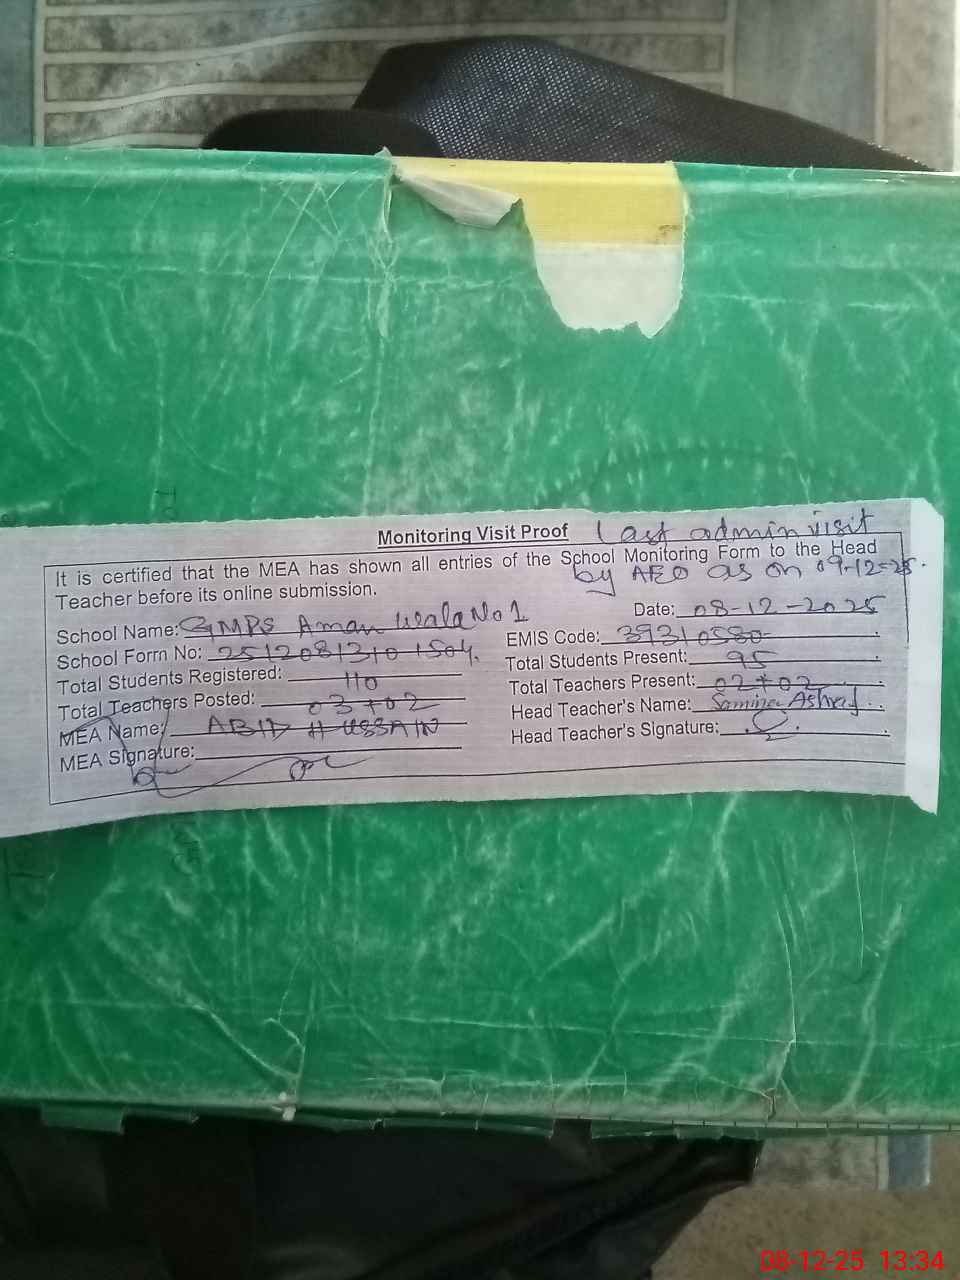 Monitoring Visit Proof Last admin visit
It is certified that the MEA has shown all entries of the School Monitoring Form to the Head
by AEO as on 09-12-25.
Teacher before its online submission.
Date: 08-12-2025
School Name: GMPS Aman wala No 1
EMIS Code: 39310580
School Form No: 2512081310 1504
Total Students Present: 95
Total Students Registered: 110
Total Teachers Present: 02+02
Total Teachers Posted: 03+02
Head Teacher's Name: Samina Ashraf
MEA Name: ABID HUSSAIN
Head Teacher's Signature:
MEA Signature:
08-12-25 13:34